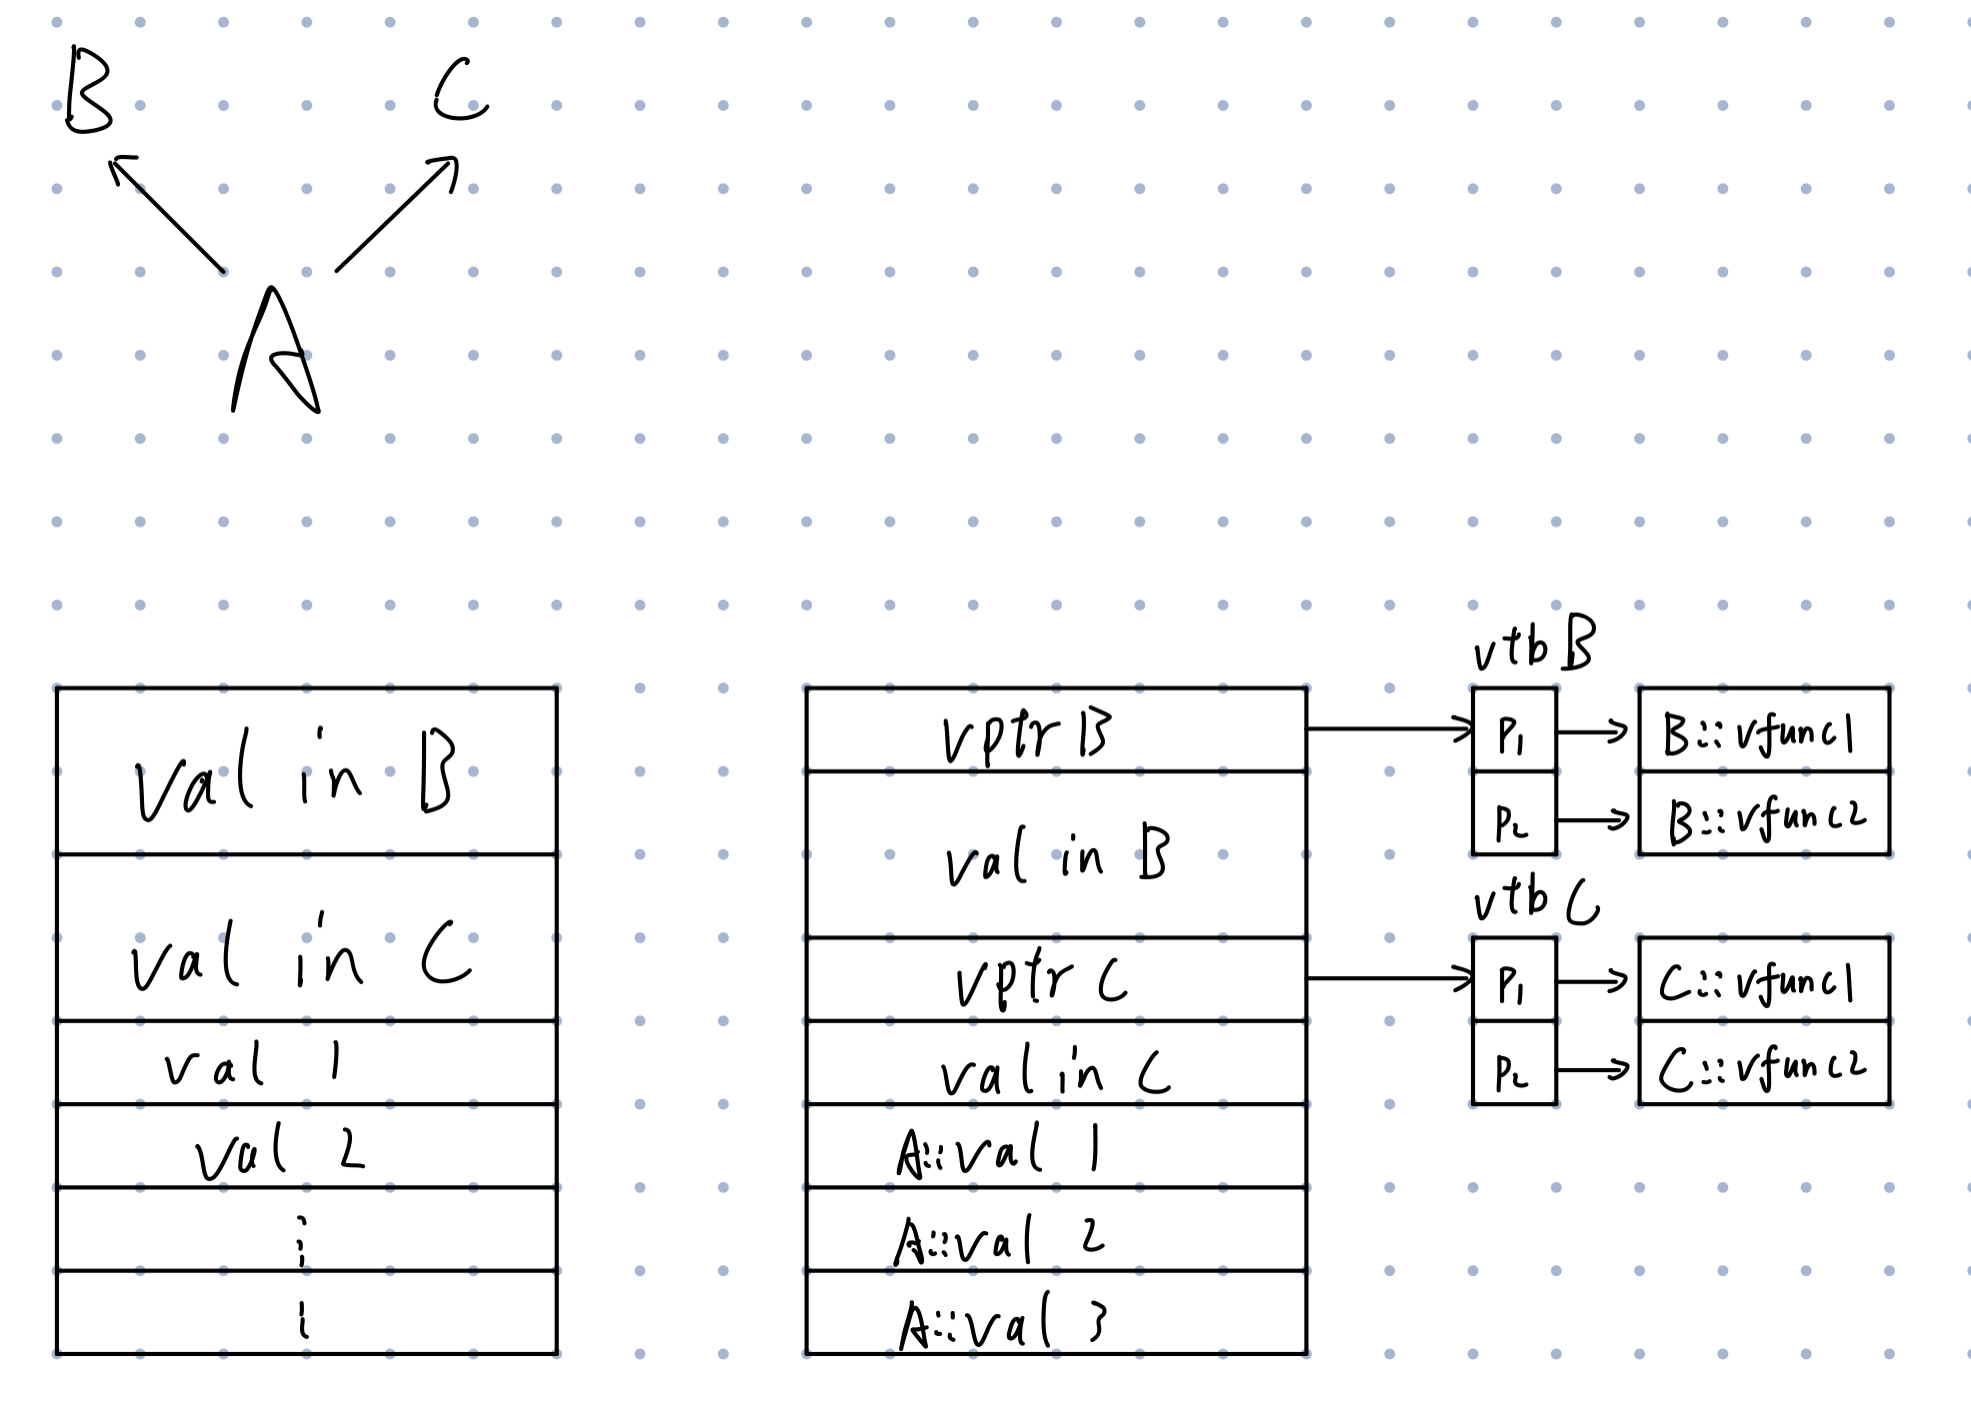 B
C
A
val in B
val in C
val 1
val 2
vptr B
val in B
vptr C
val in C
A::val 1
A::val 2
A::val 3
vtb B
P1
B::vfunc1
P2
B::vfunc2
vtb C
P1
C::vfunc1
P2
C::vfunc2